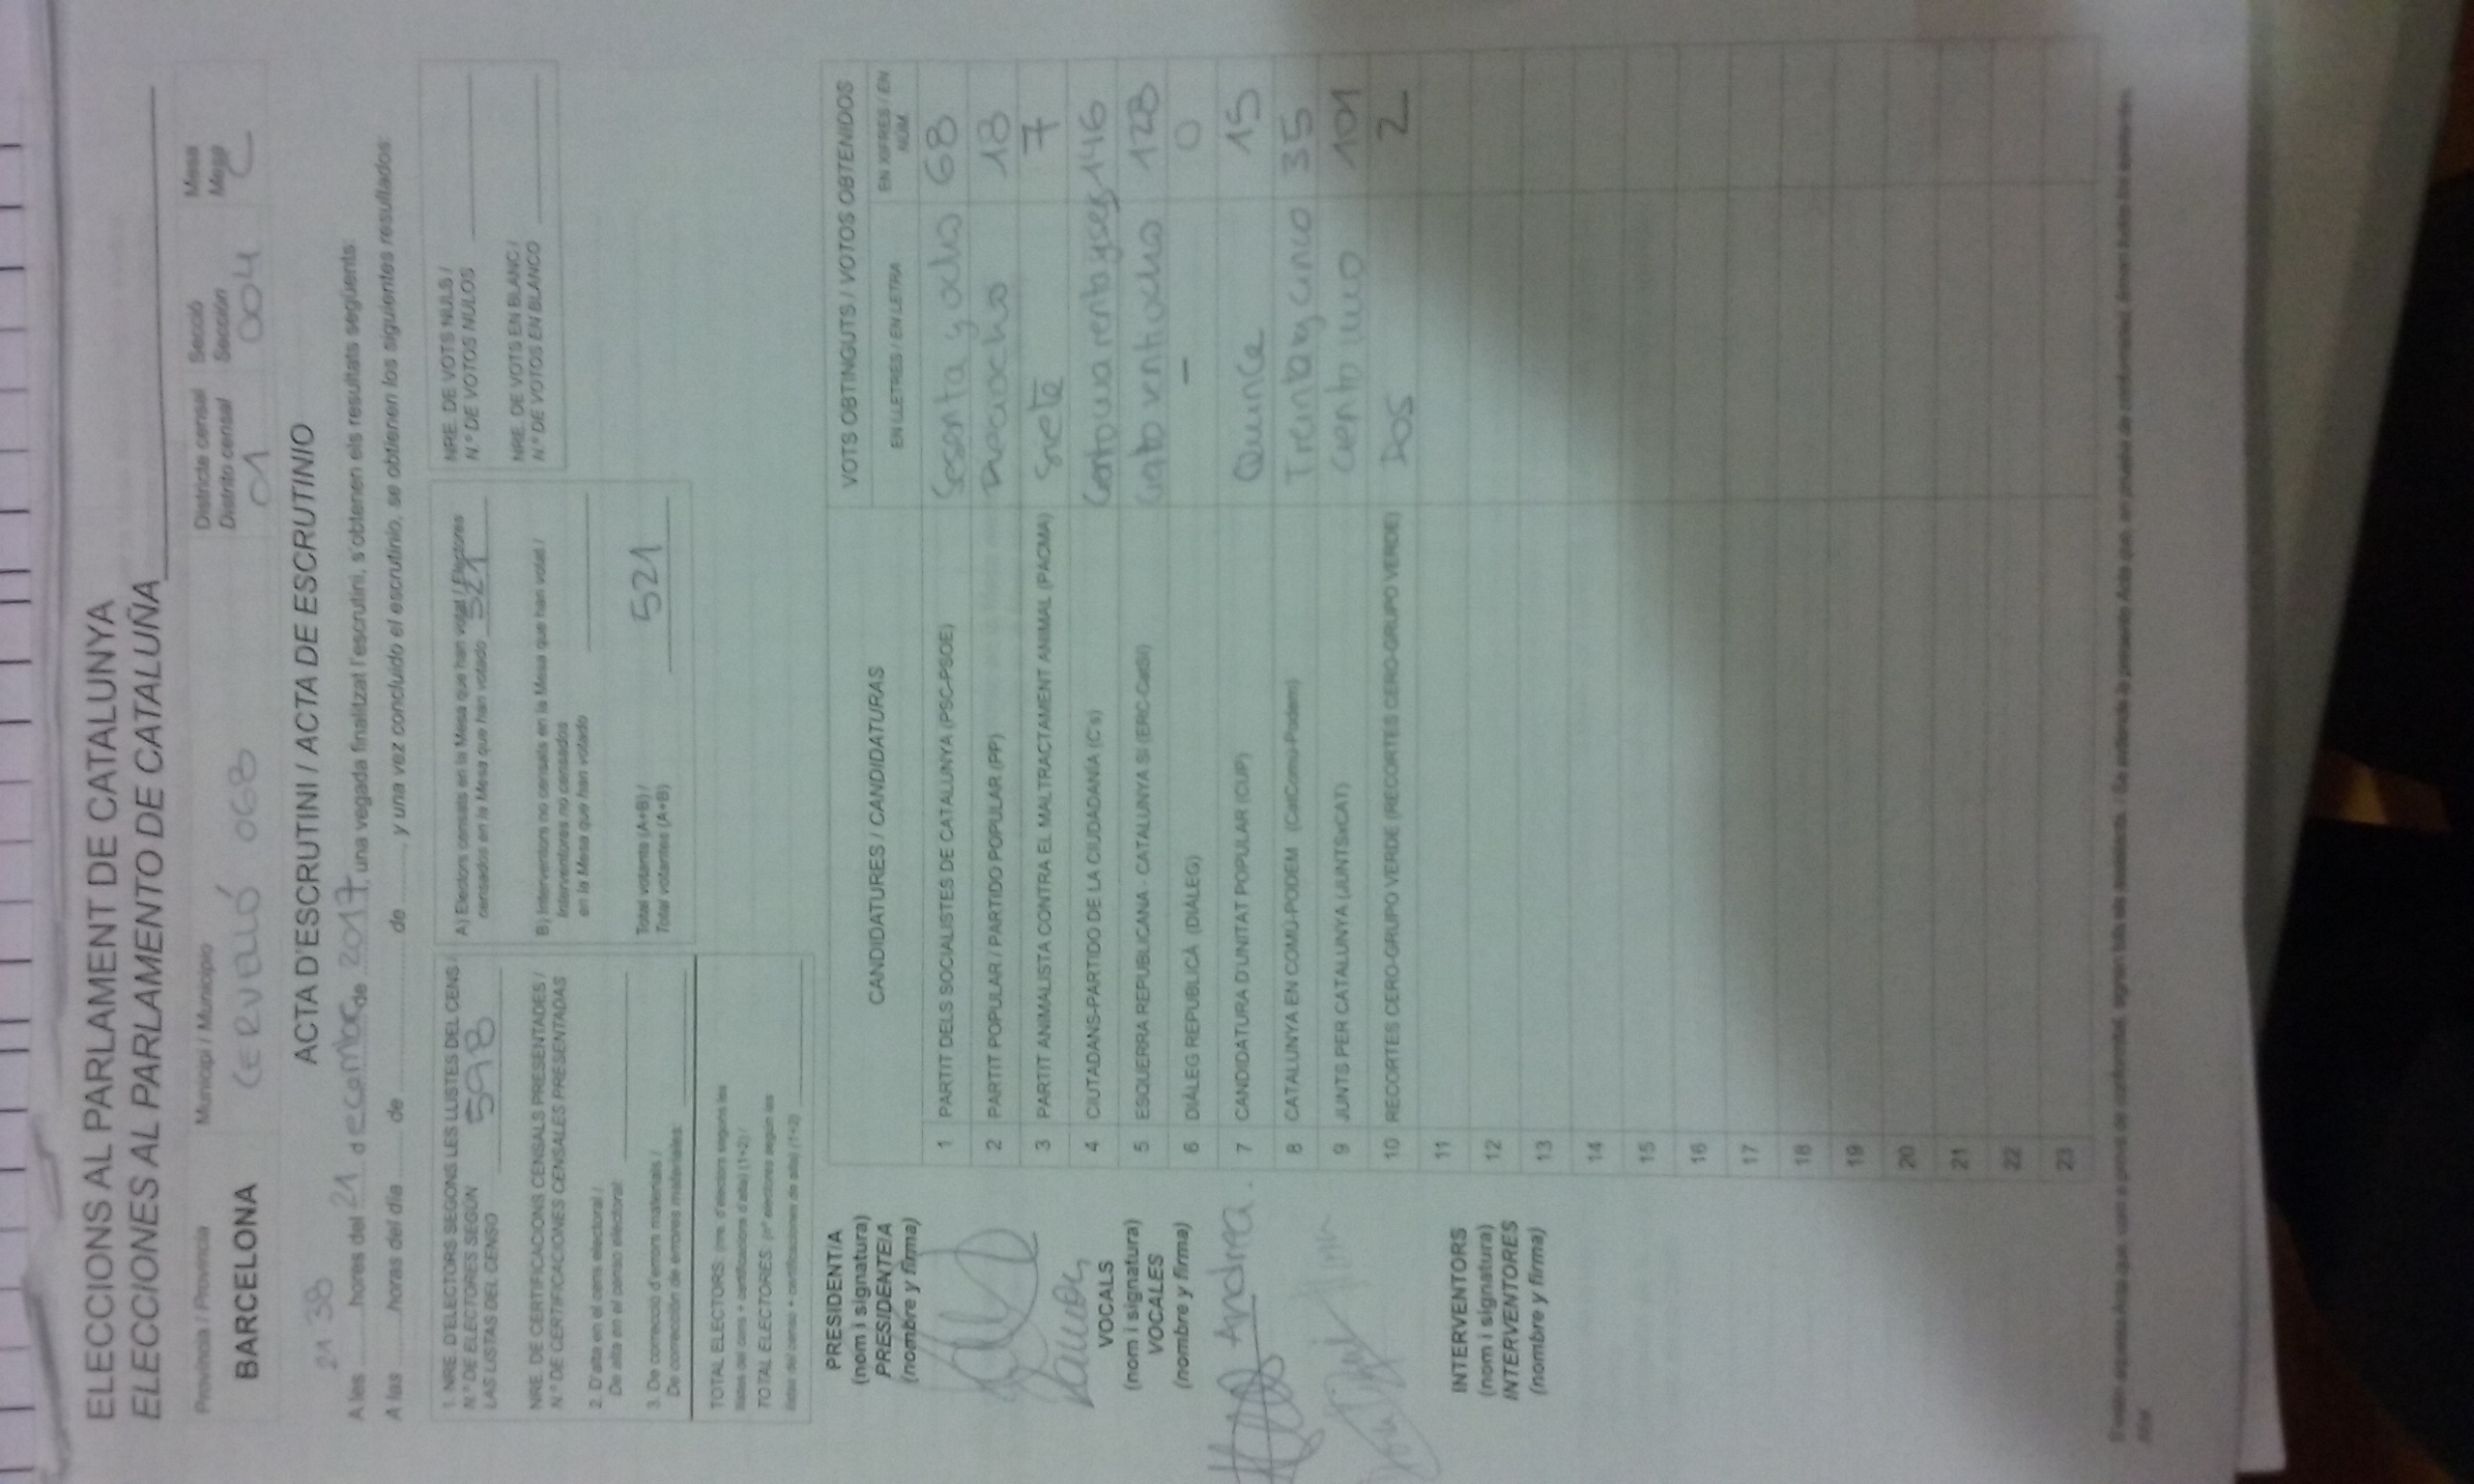 ELECCIONS AL PARLAMENT DE CATALUNYA
ELECCIONES AL PARLAMENTO DE CATALUÑA
Província / Provincia
BARCELONA
Municipi / Municipio
CERVELLÓ 068
Districte censal
Distrito censal
01
Secció
Sección
004
Mesa
Mesa
C
ACTA D'ESCRUTINI / ACTA DE ESCRUTINIO
21 38
A les hores del 21 d ecembre de 2017, una vegada finalitzat l'escrutini, s'obtenen els resultats següents:
A las horas del día de de , y una vez concluido el escrutinio, se obtienen los siguientes resultados:
1. NRE. D'ELECTORS SEGONS LES LLISTES DEL CENS /
N.º DE ELECTORES SEGÚN
LAS LISTAS DEL CENSO
598
NRE. DE CERTIFICACIONS CENSALS PRESENTADES /
N.º DE CERTIFICACIONES CENSALES PRESENTADAS
2. D'alta en el cens electoral /
De alta en el censo electoral:
3. De correcció d'errors materials /
De corrección de errores materiales:
TOTAL ELECTORS: (nre. d'electors segons les
llistes del cens + certificacions d'alta) (1+2) /
TOTAL ELECTORES: (nº electores según las
listas del censo + certificaciones de alta) (1+2)
A) Electors censats en la Mesa que han votat / Electores
censados en la Mesa que han votado 521
B) Interventors no censats en la Mesa que han votat /
Interventores no censados
en la Mesa que han votado
Total votants (A+B) /
Total votantes (A+B)
521
NRE. DE VOTS NULS /
N.º DE VOTOS NULOS
NRE. DE VOTS EN BLANC /
N.º DE VOTOS EN BLANCO
CANDIDATURES / CANDIDATURAS
VOTS OBTINGUTS / VOTOS OBTENIDOS
EN LLETRES / EN LETRA
EN XIFRES / EN NÚM.
1 PARTIT DELS SOCIALISTES DE CATALUNYA (PSC-PSOE) Sesenta y ocho 68
2 PARTIT POPULAR / PARTIDO POPULAR (PP) Dieciocho 18
3 PARTIT ANIMALISTA CONTRA EL MALTRACTAMENT ANIMAL (PACMA) Siete 7
4 CIUTADANS-PARTIDO DE LA CIUDADANÍA (C's) 146
5 ESQUERRA REPUBLICANA - CATALUNYA SÍ (ERC-CatSí) 128
6 DIÀLEG REPUBLICÀ (DIÀLEG) – 0
7 CANDIDATURA D'UNITAT POPULAR (CUP) Quince 15
8 CATALUNYA EN COMÚ-PODEM (CatComú-Podem) Treinta y cinco 35
9 JUNTS PER CATALUNYA (JUNTSxCAT) Ciento uno 101
10 RECORTES CERO-GRUPO VERDE (RECORTES CERO-GRUPO VERDE) Dos 2
11
12
13
14
15
16
17
18
19
20
21
22
23
PRESIDENT/A
(nom i signatura)
PRESIDENTE/A
(nombre y firma)
VOCALS
(nom i signatura)
VOCALES
(nombre y firma)
Andrea.
INTERVENTORS
(nom i signatura)
INTERVENTORES
(nombre y firma)